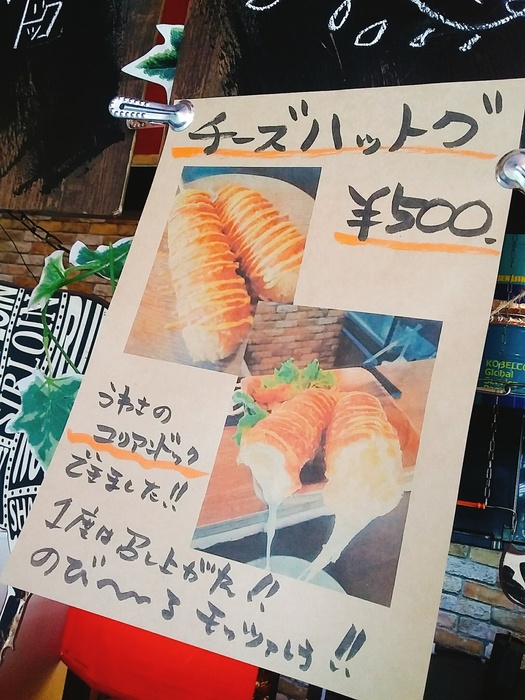 チーズハットグ
¥500.
うわさの
コリアンドック
できました!!
1度は召し上がた!!
のび〜〜る モッツァレラ!!
KOBELCO
Global
SIRLOIN